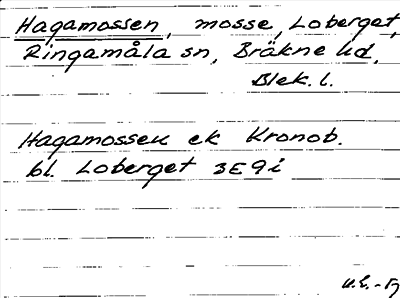 Hagamossen, mosse, Loberget,
Ringamåla sn, Bräkne hd,
Blek. l.
Hagamossen ek Kronob.
bl. Loberget 3E9i